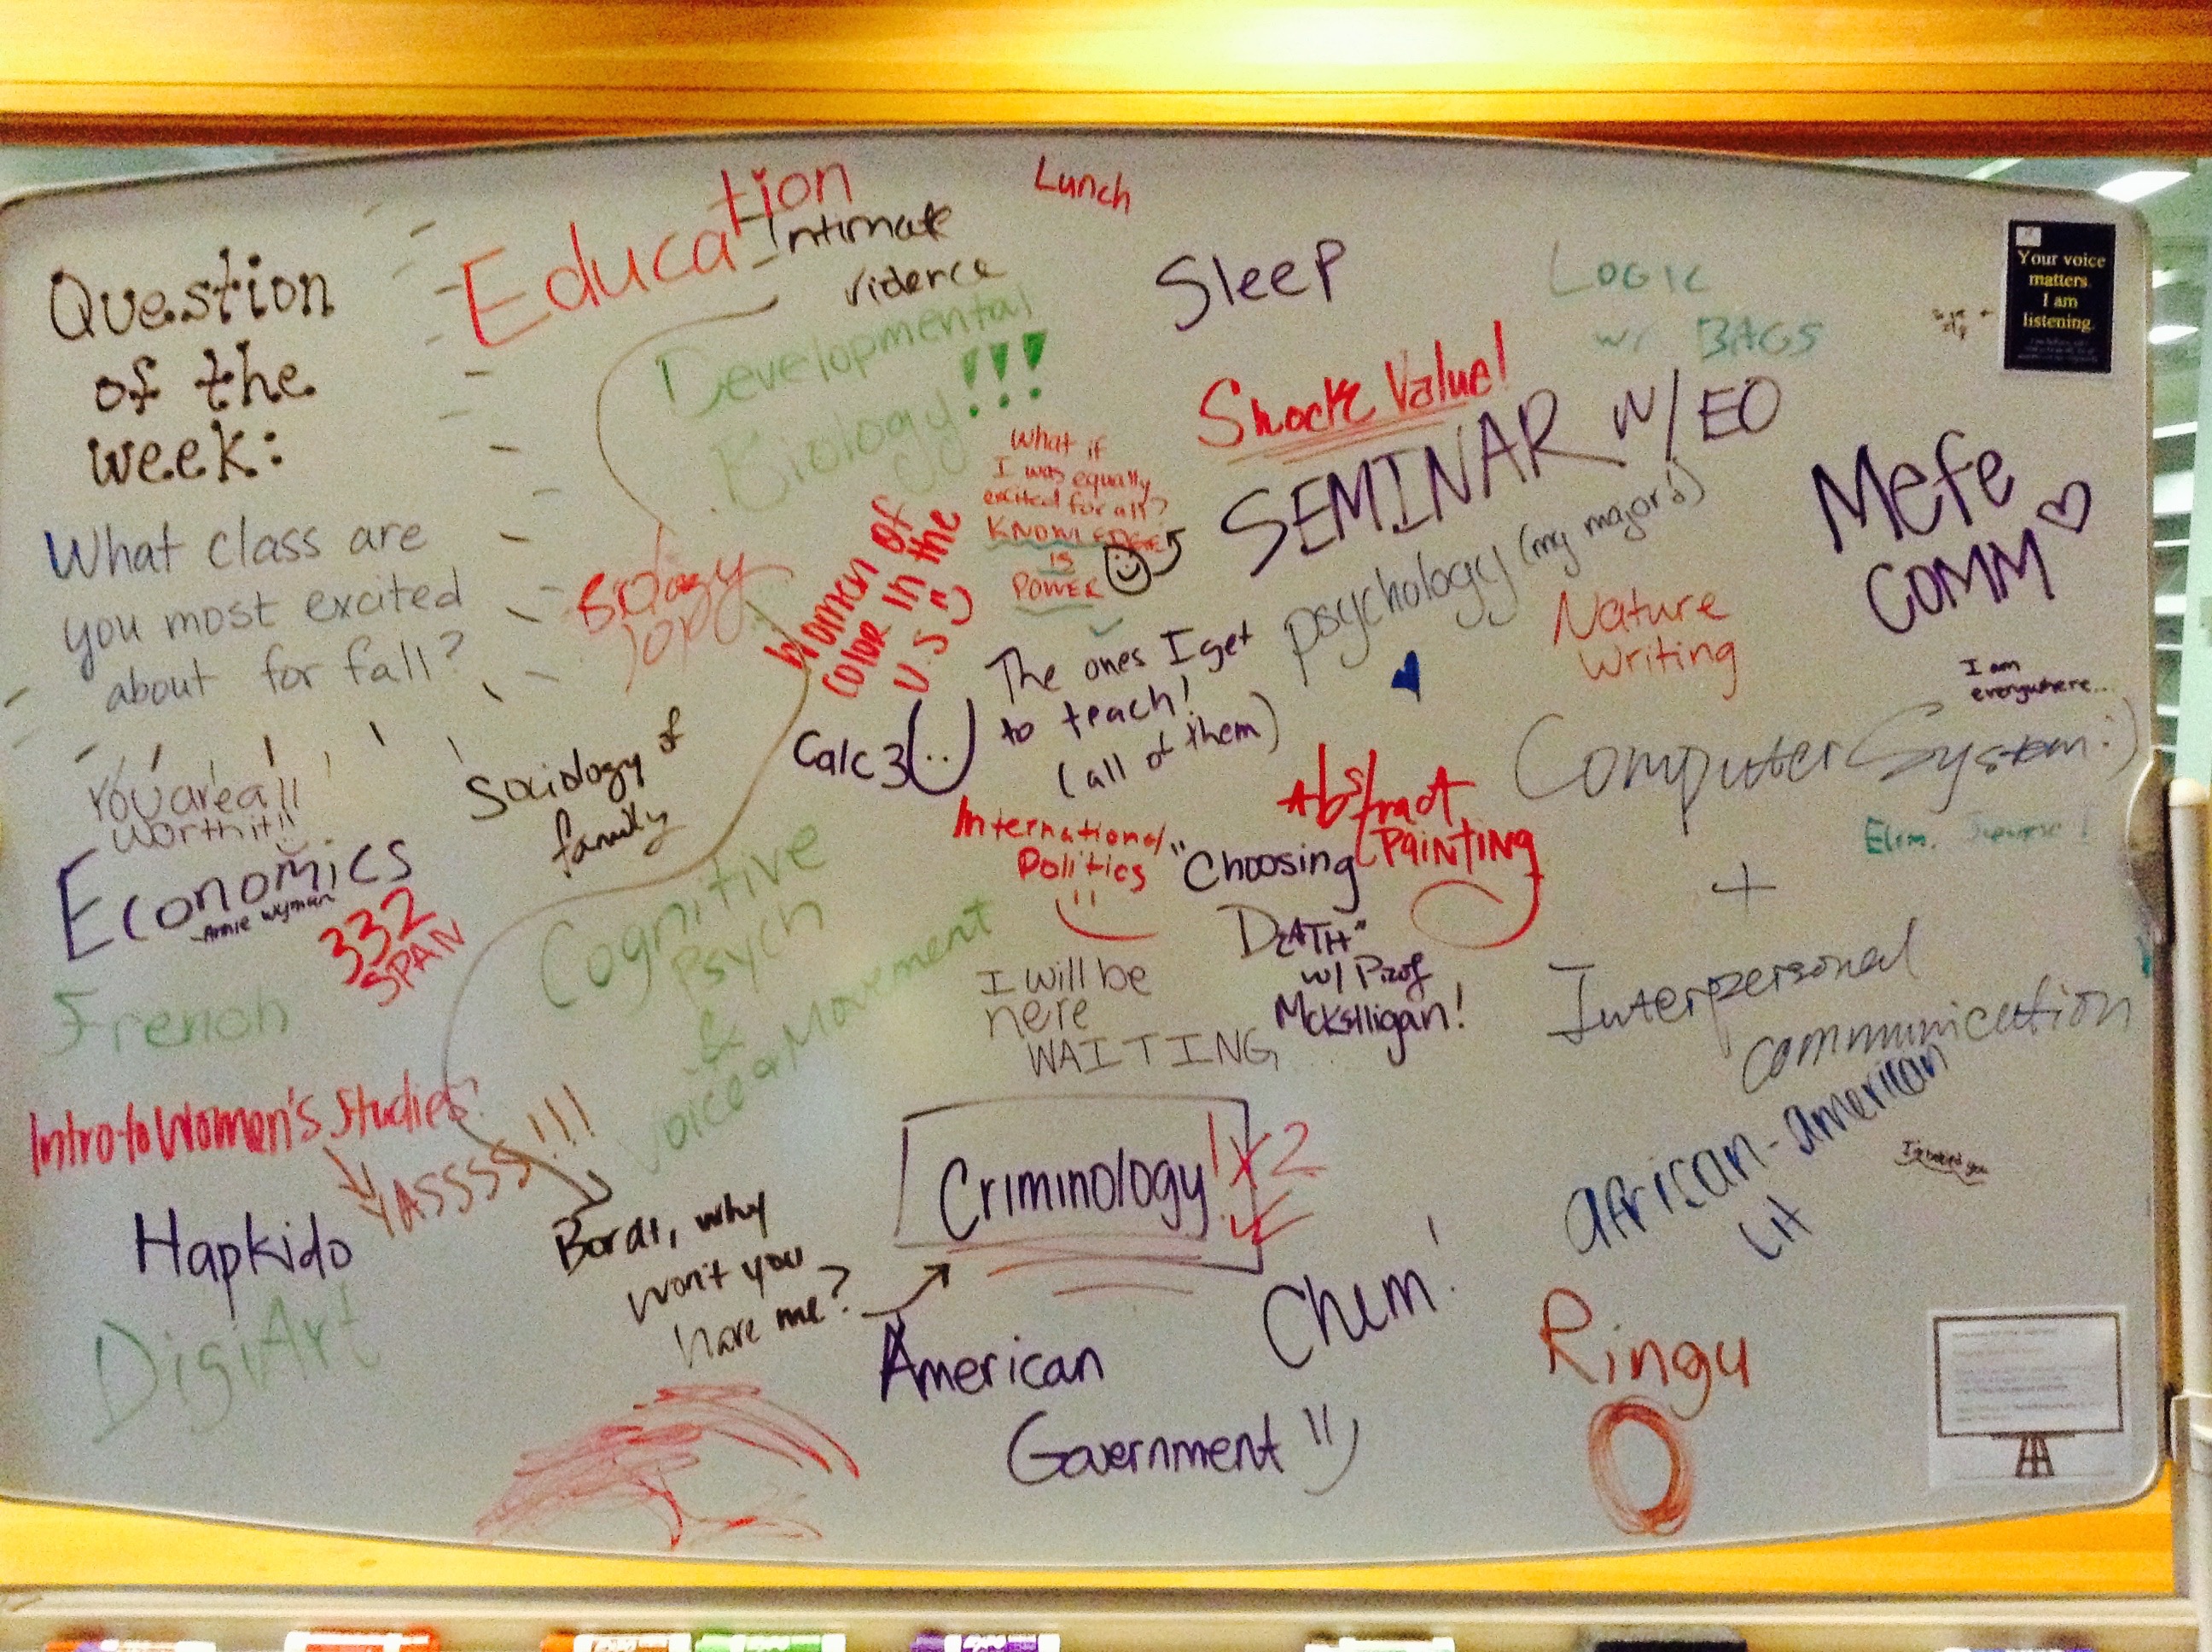 Question
of the
week:
What class are
you most excited
about for fall?
You are all
worth it!!
Economics
-Arnie Wyman
332
SPAN
French
Intro to Women's Studies!
YASSSS!!!
Hapkido
DigiArt
Education
Intimate
Developmental
Biology!!!
Sociology of
family
Cognitive
Psych
&
Voice & Movement
why
won't you
have me?
Lunch
Sleep
What if
I was equally
excited for all?
KNOWLEDGE
IS
POWER
Women of
Color in the
U.S
Calc 3
The ones I get
to teach!
(all of them)
International
Politics
I will be
here
WAITING
Criminology! x2
American
Government
Chem!
Shock Value!
SEMINAR w/ EO
psychology (my major!)
Abstract
Painting
"Choosing
DEATH"
w/ Prof
McKelligan!
Logic
w/ BAGS
Nature
Writing
Mefe
COMM
I am
everywhere...
Computer System :)
+
Interpersonal
communication
African-american
Lit
Ringu
Your voice
matters.
I am
listening.